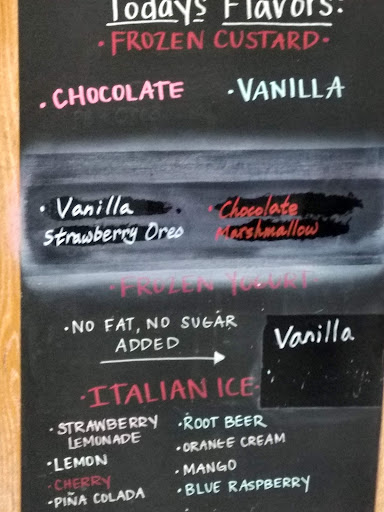 Todays Flavors:
• FROZEN CUSTARD •
• CHOCOLATE • VANILLA
• Vanilla • Chocolate
Strawberry Oreo Marshmallow
FROZEN YOGURT
• NO FAT, NO SUGAR
ADDED
Vanilla
• ITALIAN ICE •
• STRAWBERRY
LEMONADE
• LEMON
• CHERRY
• PIÑA COLADA
• ROOT BEER
• ORANGE CREAM
• MANGO
• BLUE RASPBERRY